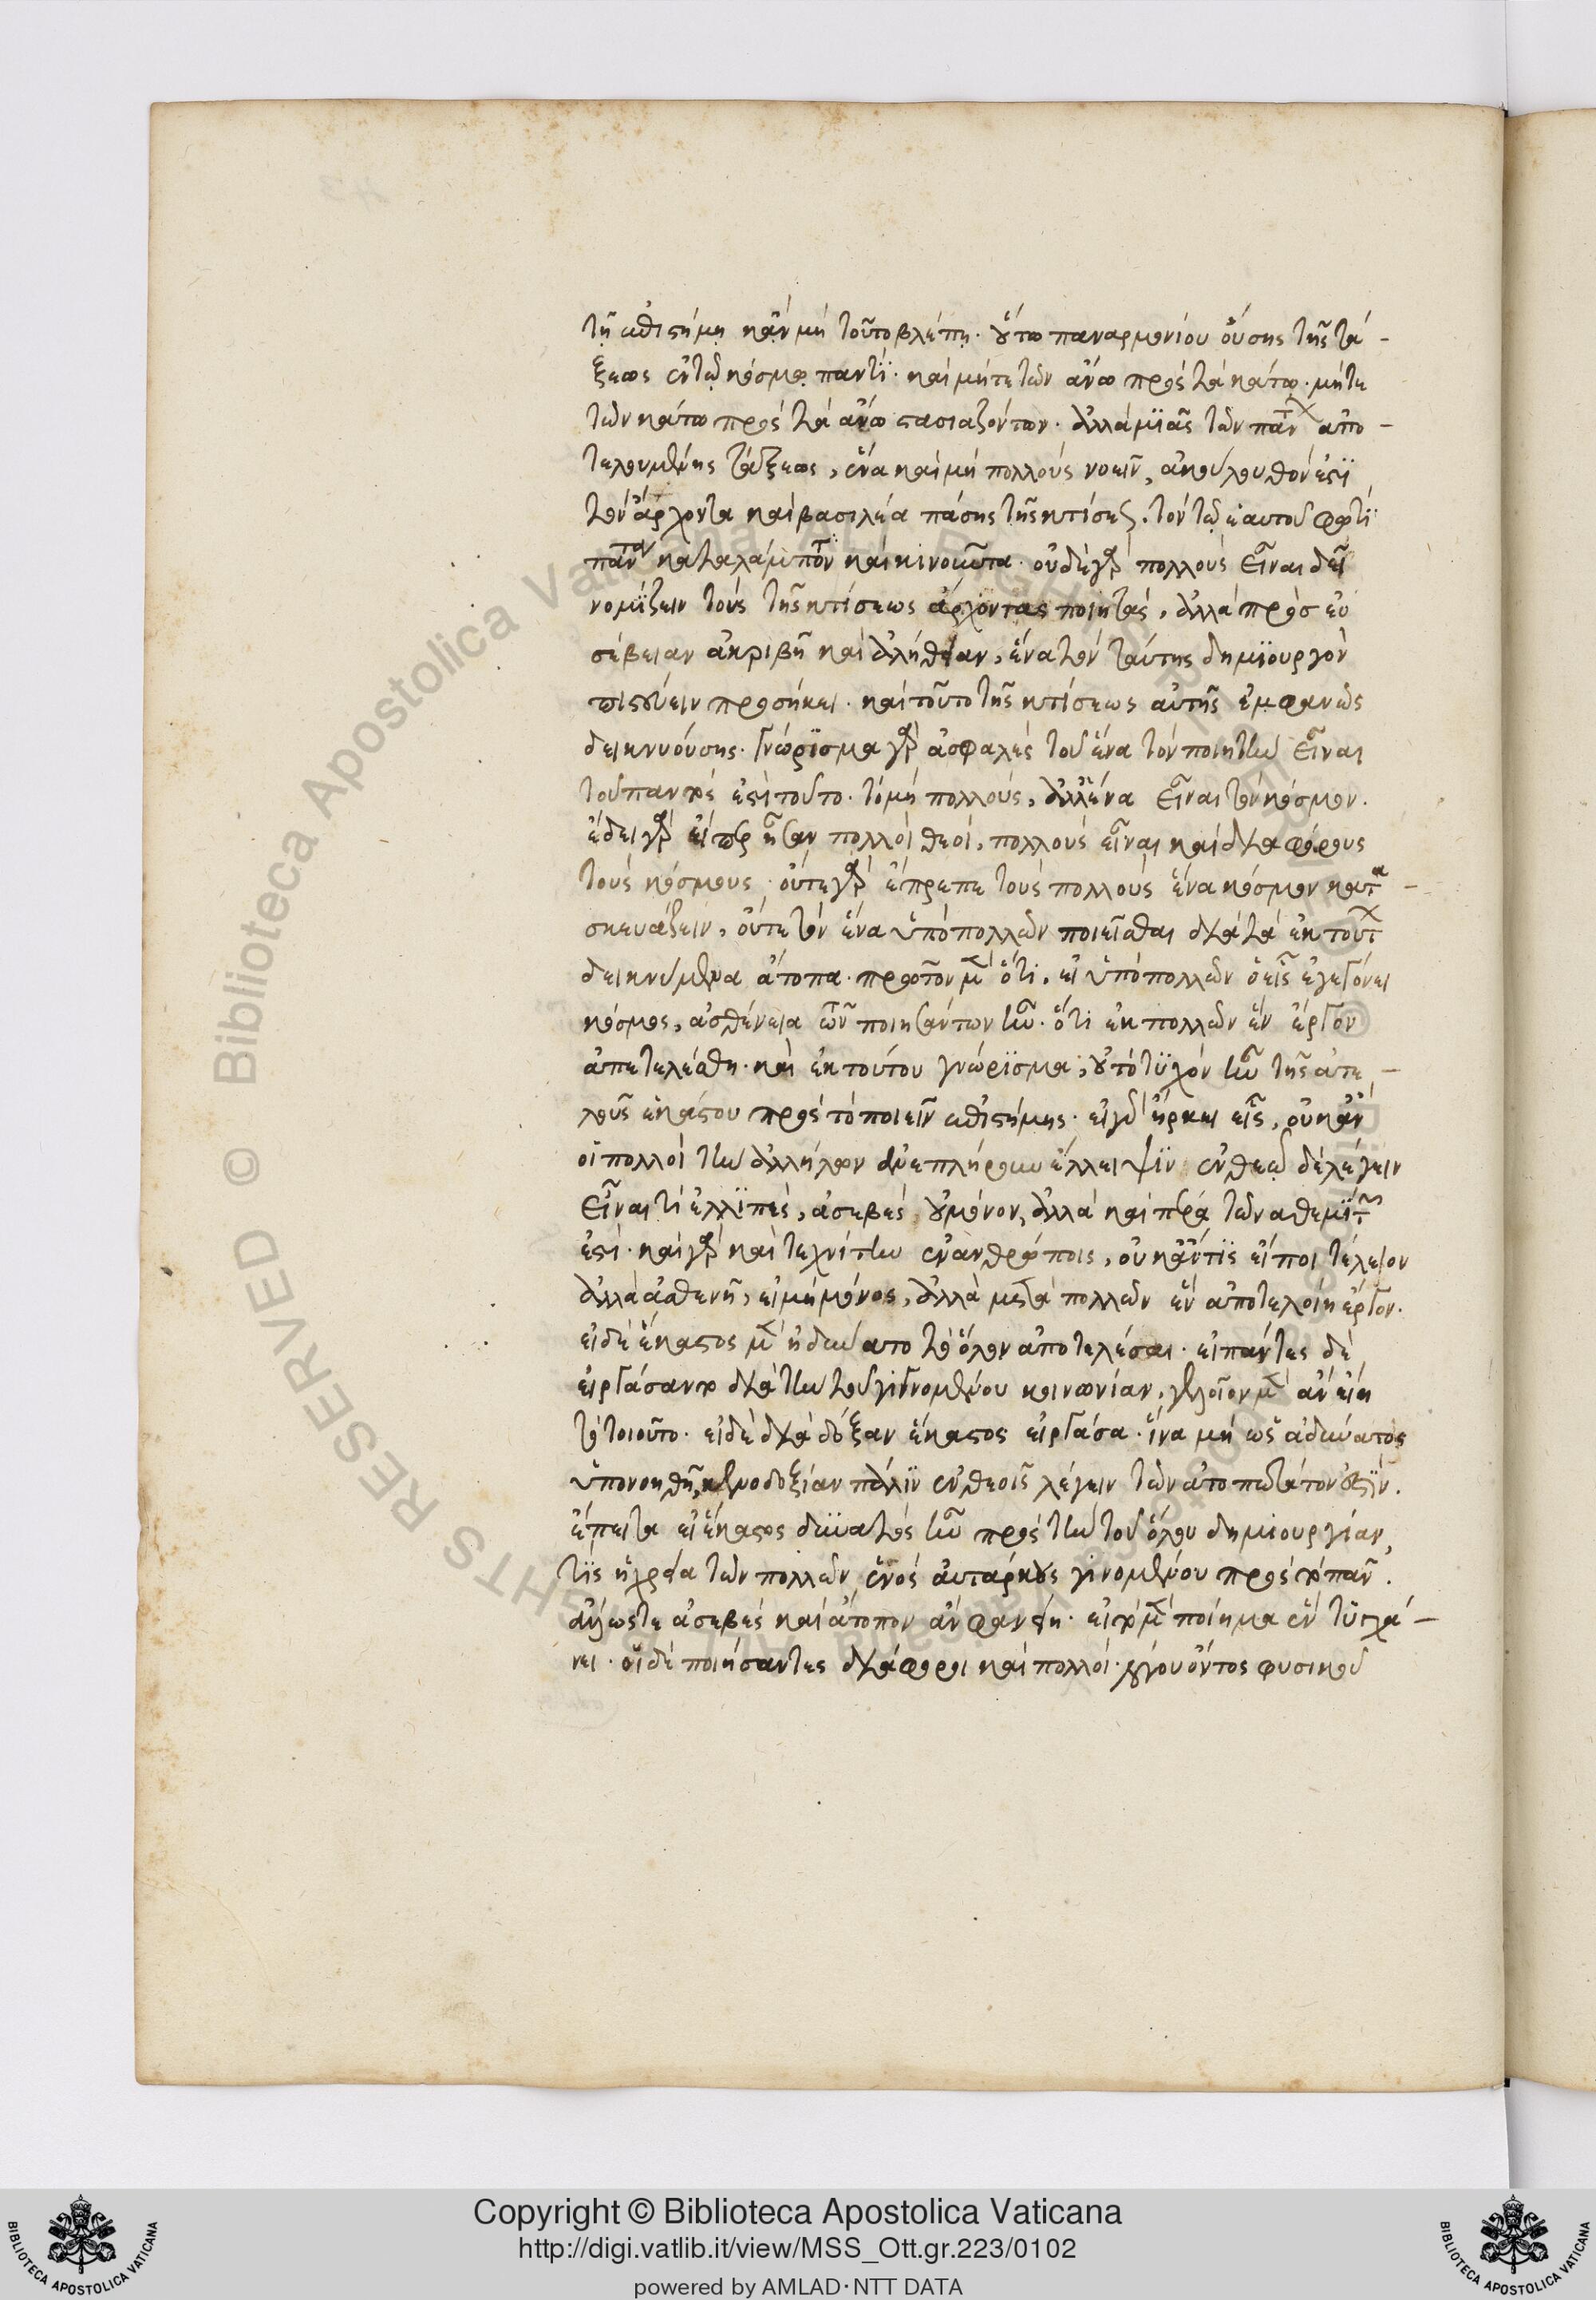 τῇ ἐπιστήμῃ κἂν μὴ τοῦτο βλέπῃ· οὕτω παναρμονίου οὔσης τῆς τά-
ξεως ἐν τῷ κόσμῳ παντί· καὶ μήτε τῶν ἄνω πρὸς τὰ κάτω· μήτε
τῶν κάτω πρὸς τὰ ἄνω στασιαζόντων· ἀλλὰ μιᾶς τῶν πάντων ἀπο-
τελουμένης τάξεως, ἕνα καὶ μὴ πολλοὺς νοεῖν, ἀκόλουθον ἐστὶ
τὸν ἄρχοντα καὶ βασιλέα πάσης τῆς κτίσεως. τὸν τῷ ἑαυτοῦ φωτὶ
πάντα καταλάμποντα καὶ κινοῦντα· οὐδὲ γὰρ πολλοὺς εἶναι δεῖ
νομίζειν τοὺς τῆς κτίσεως ἄρχοντας ποιητάς, ἀλλὰ πρὸς εὐ
σέβειαν ἀκριβῆ καὶ ἀλήθειαν, ἕνα τὸν ταύτης δημιουργὸν
πιστεύειν προσήκει· καὶ τοῦτο τῆς κτίσεως αὐτῆς ἐμφανῶς
δεικνυούσης· γνώρισμα γὰρ ἀσφαλὲς τοῦ ἕνα τὸν ποιητὴν εἶναι
τοῦ παντός ἐστι τοῦτο· τὸ μὴ πολλούς, ἀλλ' ἕνα εἶναι τὸν κόσμον·
ἔδει γὰρ εἴπερ ἦσαν πολλοὶ θεοί, πολλοὺς εἶναι καὶ διαφόρους
τοὺς κόσμους· οὔτε γὰρ ἔπρεπε τοὺς πολλοὺς ἕνα κόσμον κατα-
σκευάζειν, οὔτε τὸν ἕνα ὑπὸ πολλῶν ποιεῖσθαι διὰ τὰ ἐκ τούτων
δεικνύμενα ἄτοπα· πρῶτον μὲν ὅτι, εἰ ὑπὸ πολλῶν ὁ εἷς ἐγεγόνει
κόσμος, ἀσθένεια τῶν ποιησάντων ἦν· ὅτι ἐκ πολλῶν ἓν ἔργον
ἀπετελέσθη· καὶ ἐκ τούτου γνώρισμα, οὐ τὸ τυχὸν ἦν τῆς ἀτε-
λοῦς ἑκάστου πρὸς τὸ ποιεῖν ἐπιστήμης· εἰ γὰρ ἤρκει εἷς, οὐκ ἂν
οἱ πολλοὶ τὴν ἀλλήλων ἀνεπλήρουν ἔλλειψιν· ἐν θεῷ δὲ λέγειν
εἶναι τὶ ἐλλιπές, ἀσεβὲς οὐ μόνον, ἀλλὰ καὶ πέρα τῶν ἀθεμίτων
ἐστί· καὶ γὰρ καὶ τεχνίτην ἐν ἀνθρώποις, οὐκ ἄν τις εἴποι τέλειον
ἀλλὰ ἀσθενῆ, εἰ μὴ μόνος, ἀλλὰ μετὰ πολλῶν ἓν ἀποτελοίη ἔργον·
εἰ δὲ ἕκαστος μὲν ἠδύνατο τὸ ὅλον ἀποτελέσαι· εἰ πάντες δὲ
εἰργάσαντο διὰ τὴν τοῦ γιγνομένου κοινωνίαν, γελοῖον μὲν ἂν εἴη
τὸ τοιοῦτο· εἰ δὲ διὰ δόξαν ἕκαστος εἰργάσα· ἵνα μὴ ὡς ἀδύνατος
ὑπονοηθῇ, κενοδοξίαν πάλιν ἐν θεοῖς λέγειν τῶν ἀτοπωτάτων ἐστίν·
ἔπειτα εἰ ἕκαστος δυνατὸς ἦν πρὸς τὴν τοῦ ὅλου δημιουργίαν,
τίς ἡ χρεία τῶν πολλῶν, ἑνὸς αὐτάρκους γινομένου πρὸς τὸ πᾶν·
ἄλλως τε ἀσεβὲς καὶ ἄτοπον ἂν φανείη· εἰ τὸ μὲν ποίημα ἓν τυγχά-
νει· οἱ δὲ ποιήσαντες διάφοροι καὶ πολλοί· λόγου ὄντος φυσικοῦ
© Biblioteca Apostolica Vaticana ALL RIGHTS RESERVED © Biblioteca Apostolica Vaticana ALL RIGHTS RESERVED
BIBLIOTECA APOSTOLICA VATICANA
Copyright © Biblioteca Apostolica Vaticana
http://digi.vatlib.it/view/MSS_Ott.gr.223/0102
powered by AMLAD·NTT DATA
BIBLIOTECA APOSTOLICA VATICANA